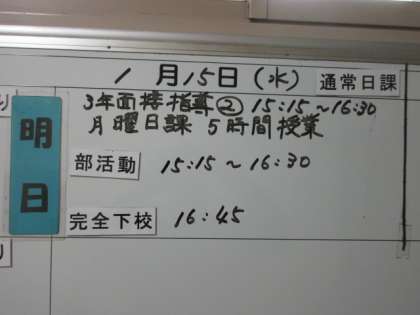 1月15日(水) 通常日課
明日
3年面接指導② 15:15~16:30
月曜日課 5時間授業
部活動 15:15~16:30
完全下校 16:45